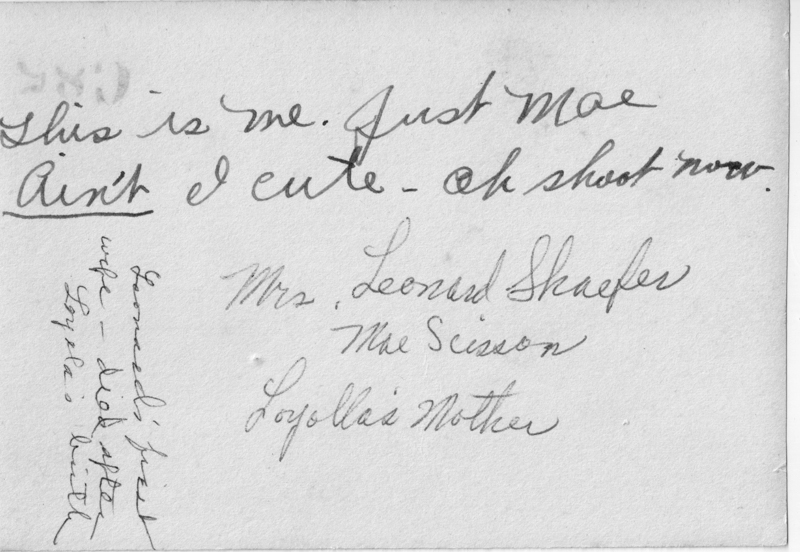 This is me. Just Mae
Ain't I cute - oh shoot now.
Mrs. Leonard Shaefer
Mae Scisson
Loyolla's Mother
Leonards' first
wife - died after
Loyola's birth